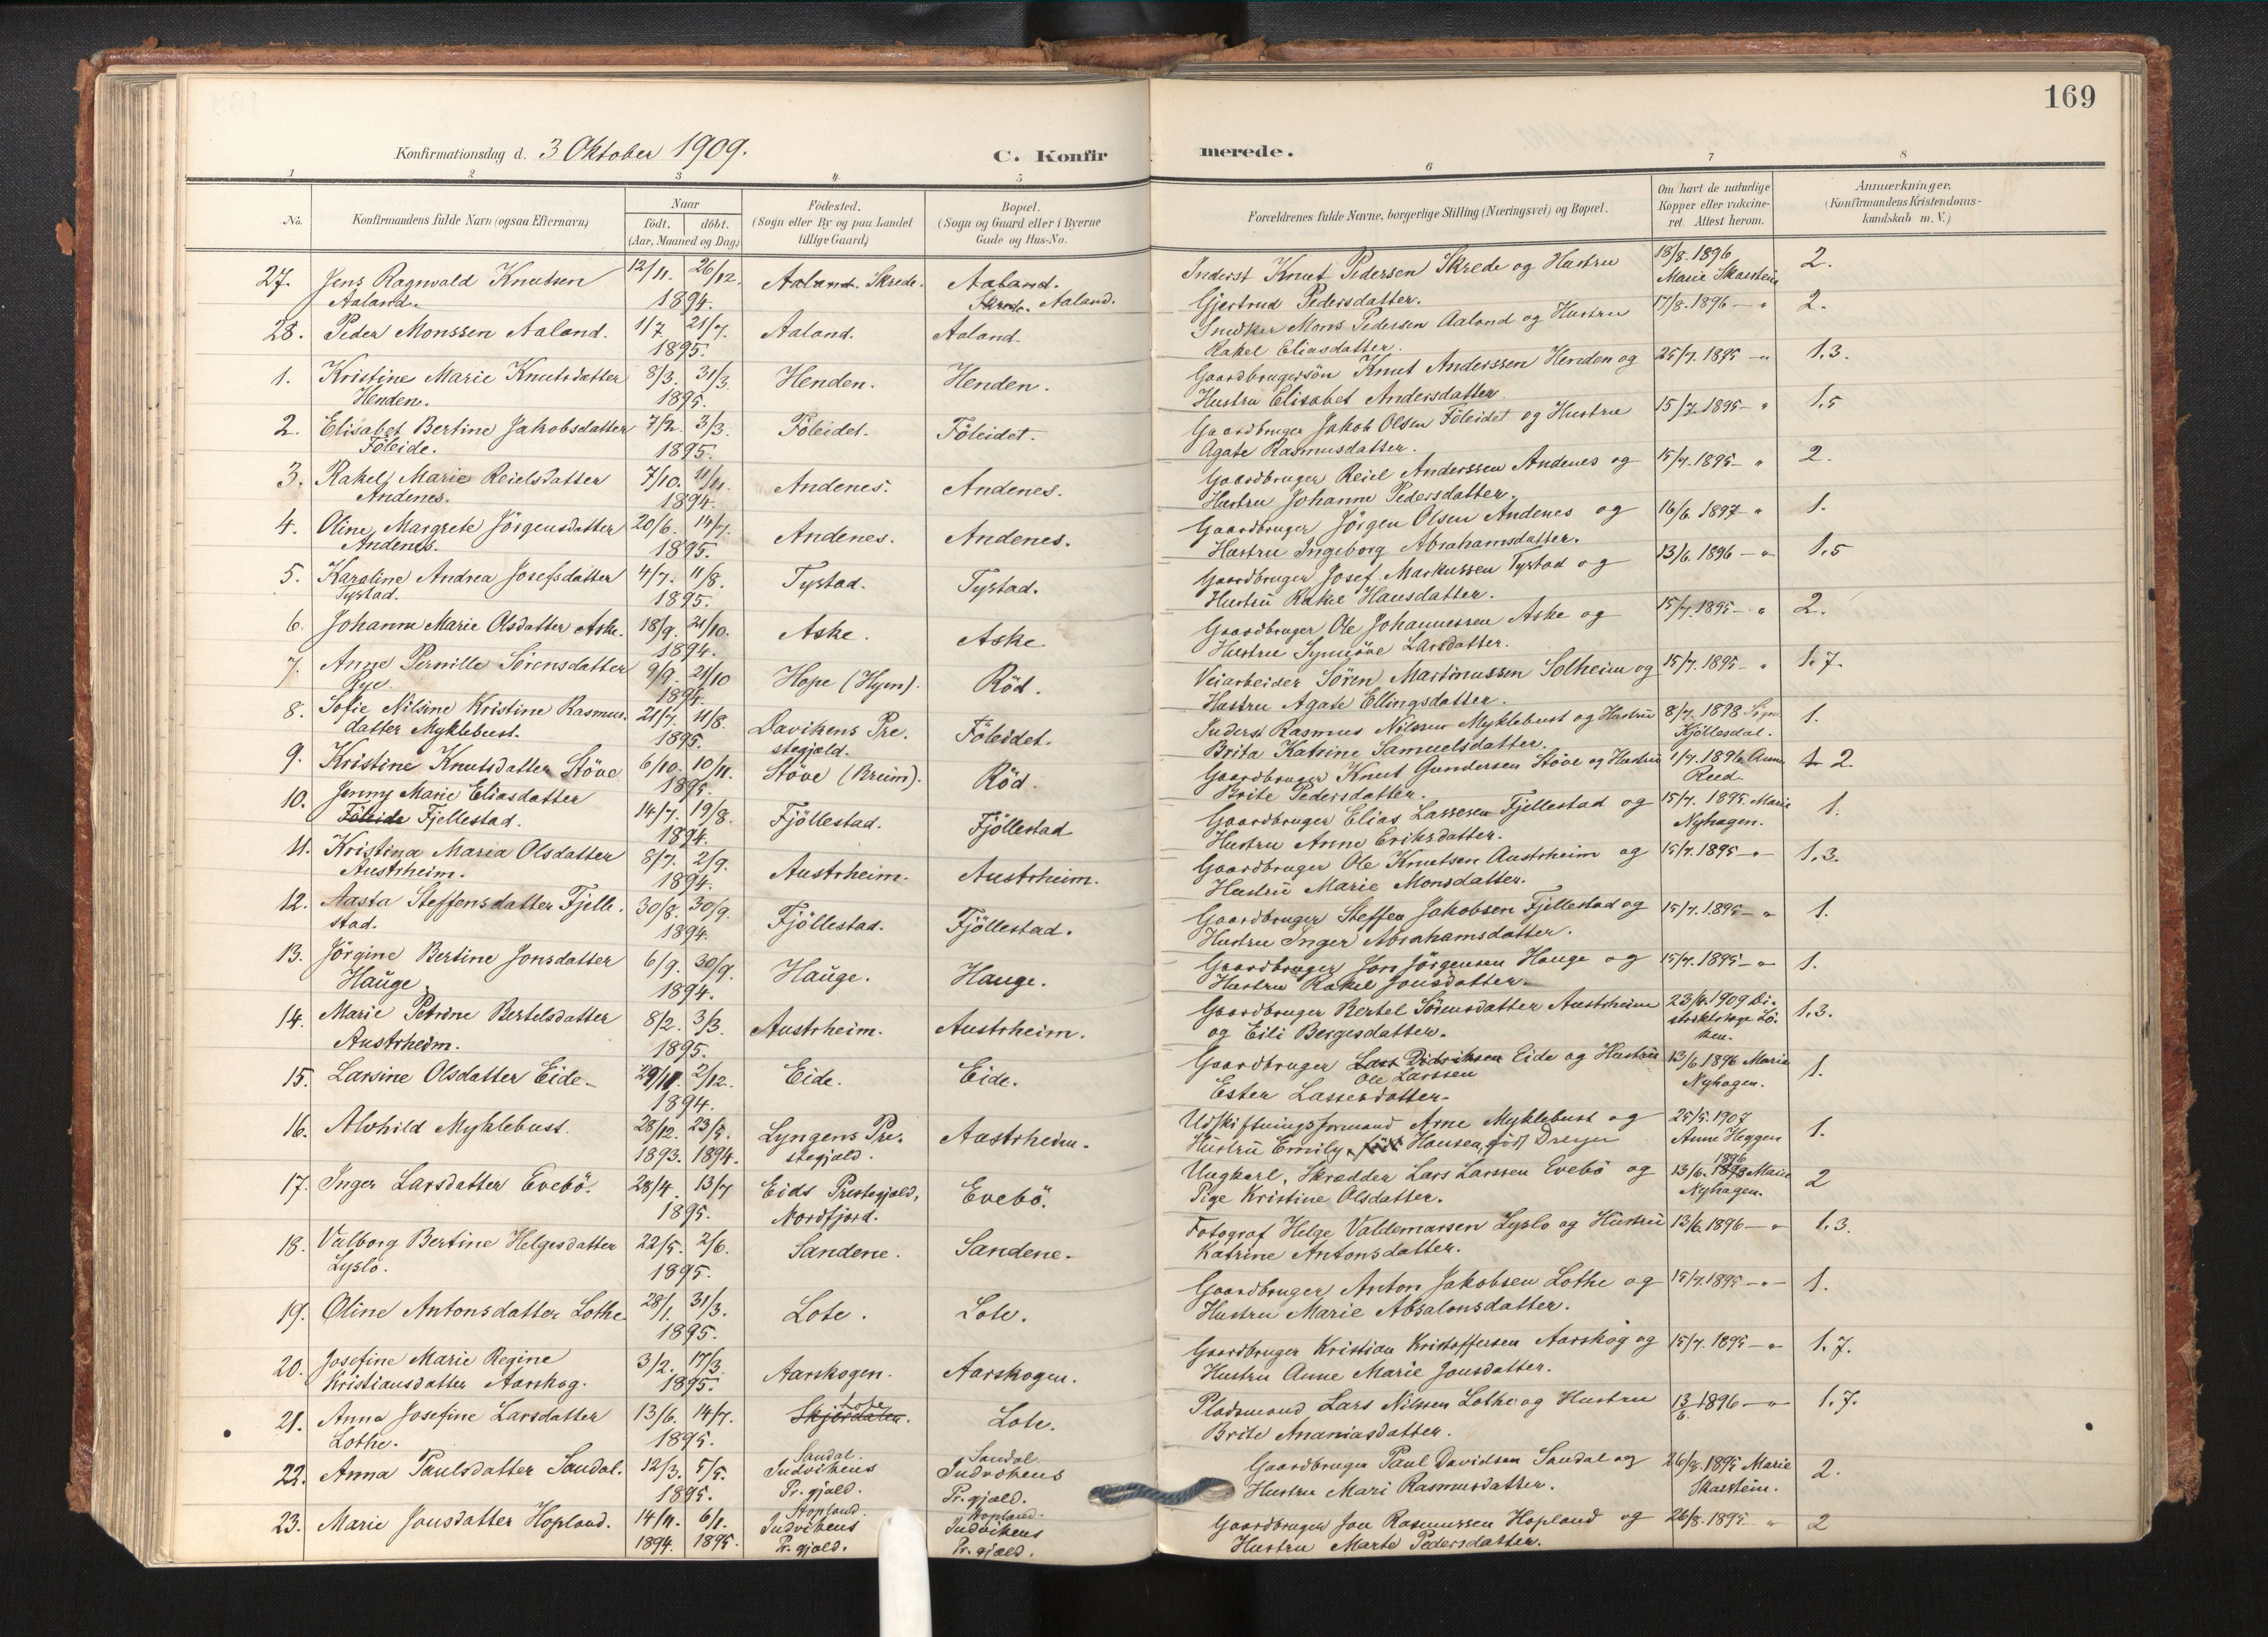 169
Konfirmationsdag d. 3 Oktober 1909. C. Konfir merede.
1 2 3 4 5 6 7 8
No. Konfirmandens fulde Navn (ogsaa Efternavn) Naar født. døbt. (Aar, Maaned og Dag) Fødested. (Sogn eller By og paa Landet tillige Gaard) Bopæl. (Sogn og Gaard eller i Byerne Gade og Hus-No. Forældrenes fulde Navne, borgerlige Stilling (Næringsvei) og Bopæl. Om havt de naturlige Kopper eller vaccineret Attest herom. Anmærkninger. (Konfirmandens Kristendomskundskab m. V.)
27. Jens Ragnvald Knutsen 12/11. 26/12. Aaland. Skrede. Aaland. Inderst Knut Pedersen Skrede og Hustru 18/8. 1896 2.
Aaland. 1894. Skrede. Aaland. Gjertrud Pedersdatter. Marie Skarstein
28. Peder Monssen Aaland. 1/7 21/7. Aaland. Aaland. Snedker Mons Pedersen Aaland og Hustru 17/8. 1896 — " 2.
1895. Rakel Eliasdatter.
1. Kristine Marie Knutsdatter 8/3. 31/3. Henden. Henden. Gaardbrugersön Knut Anderssen Henden og 25/7. 1895 — " 1.3.
Henden. 1895. Hustru Elisabet Andersdatter
2. Elisabet Bertine Jakobsdatter 7/2. 3/3. Föleidet. Föleidet. Gaardbruger Jakob Olsen Föleidet og Hustru 15/7. 1895 — " 1.5
Föleide. 1895. Agate Rasmusdatter.
3. Rakel Marie Reielsdatter 7/10. 11/11. Andenes. Andenes. Gaardbruger Reiel Anderssen Andenes og 15/7. 1895 — " 2.
Andenes. 1894. Hustru Johanne Pedersdatter.
4. Oline Margrete Jörgensdatter 20/6. 14/7. Andenes. Andenes. Gaardbruger Jörgen Olsen Andenes og 16/6. 1897 — " 1.
Andenes. 1895. Hustru Ingeborg Abrahamsdatter.
5. Karoline Andrea Josefsdatter 4/7. 11/8. Tystad. Tystad. Gaardbruger Josef Markussen Tystad og 13/6. 1896 — " 1.5
Tystad. 1895. Hustru Rakel Hansdatter.
6. Johanne Marie Olsdatter Aske. 18/9. 21/10. Aske. Aske Gaardbruger Ole Johannessen Aske og 15/7. 1895 — " 2.
1894. Hustru Synnöve Larsdatter.
7. Anne Pernille Sörensdatter 9/9. 21/10 Hope (Hyen). Röd. Veiarbeider Sören Martinussen Solheim og 15/7. 1895 — " 1.7.
Rye. 1894. Hustru Agate Ellingsdatter.
8. Sofie Nilsine Kristine Rasmus- 21/7. 11/8. Davikens Pre- Föleidet. Inderst Rasmus Nilssen Myklebust og Hustru 8/7. 1898 1.
datter Myklebust. 1895. stegjæld. Brita Katrine Samuelsdatter. Kjöllesdal.
9. Kristine Knutsdatter Støve 6/10. 10/11. Støve (Breim). Röd. Gaardbruger Knut Gundersen Støve og Hustru 1/7. 1896 Anne 1. 2.
1895. Brite Pedersdatter. Reed
10. Jenny Marie Eliasdatter 14/7. 19/8. Fjöllestad. Fjöllestad Gaardbruger Elias Lassesen Fjellestad og 15/7. 1895. Marie 1.
Föleide Fjellestad. 1894. Hustru Anne Eriksdatter. Nyhagen.
11. Kristina Maria Olsdatter 8/7. 2/9. Austrheim. Austrheim. Gaardbruger Ole Knutsen Austrheim og 15/7. 1895 — " 1.3.
Austrheim. 1894. Hustru Marie Monsdatter.
12. Nasta Steffensdatter Fjelle- 30/8. 30/9. Fjöllestad. Fjöllestad. Gaardbruger Steffen Jakobsen Fjellestad og 15/7. 1895 — " 1.
stad. 1894. Hustru Inger Abrahamsdatter.
13. Jörgine Bertine Jonsdatter 6/9. 30/9. Hauge. Hauge. Gaardbruger Jon Jörgensen Hauge og 15/7. 1895 — " 1.
Hauge. 1894. Hustru Rakel Jonsdatter.
14. Marie Petrine Bertelsdatter 8/2. 3/3. Austrheim. Austrheim. Gaardbruger Bertel Sörensdatter Austrheim 23/4. 1909 Di- 1.3.
Austrheim. 1895. og Eili Bergesdatter. striktslæge Lö-
ken.
15. Larsine Olsdatter Eide. 29/11. 2/12. Eide. Eide. Gaardbruger Lars Didriksen Eide og Hustru 13/6 1896 Marie 1.
1894. Ole Larssen Ester Lassesdatter. Nyhagen.
16. Alvhild Myklebust. 28/12. 23/5. Lyngens Pre- Austrheim. Udskiftningsformand Arne Myklebust og 25/5. 1907 1.
1893. 1894. stegjæld. Hustru Emily Hansen, født Dreyer Anne Heggen
17. Inger Larsdatter Evebö. 28/4. 13/7 Eids Prestegjæld, Evebö. Ungkarl, Skrædder Lars Larssen Evebö og 13/6. 1896 Marie 2
1895. Nordfjord. Pige Kristine Olsdatter. Nyhagen.
18. Valborg Bertine Helgesdatter 22/5. 2/6. Sandene. Sandene. Fotograf Helge Valdemarsen Lyslo og Hustru 13/6 1896 — " 1.3.
Lyslo. 1895. Katrine Antonsdatter.
19. Oline Antonsdatter Lothe 28/1. 31/3. Lote. Lote. Gaardbruger Anton Jakobsen Lothe og 15/7. 1895 — " — 1.
1895. Hustru Marie Absalonsdatter.
20. Josefine Marie Regine 3/2. 17/3. Aarskogen. Aarskogen. Gaardbruger Kristian Kristoffersen Aarskog og 15/7. 1895 — " 1.7.
Kristiansdatter Aarskog. 1895. Hustru Anne Marie Jonsdatter.
21. Anna Josefine Larsdatter 13/6. 14/7. Skjördalen. Lote Lote. Pladsmand Lars Nilssen Lothe og Hustru 13/6 1896 — " 1.7.
Lothe. 1895. Brite Ananiasdatter.
22. Anna Paulsdatter Sandal. 12/3. 5/5. Sandal. Indvikens Sandal. Indvikens Gaardbruger Paul Davidsen Sandal og 26/8. 1895 Marie 2.
1895. Pr.gjæld. Pr.gjæld. Hustru Mari Rasmusdatter. Skarstein.
23. Marie Jonsdatter Hopland. 14/11. 6/1. Hopland. Indvikens Hopland. Indvikens Gaardbruger Jon Rasmussen Hopland og 26/8. 1895 — " 2
1894. 1895. Pr.gjæld. Pr.gjæld. Hustru Marte Pedersdatter.